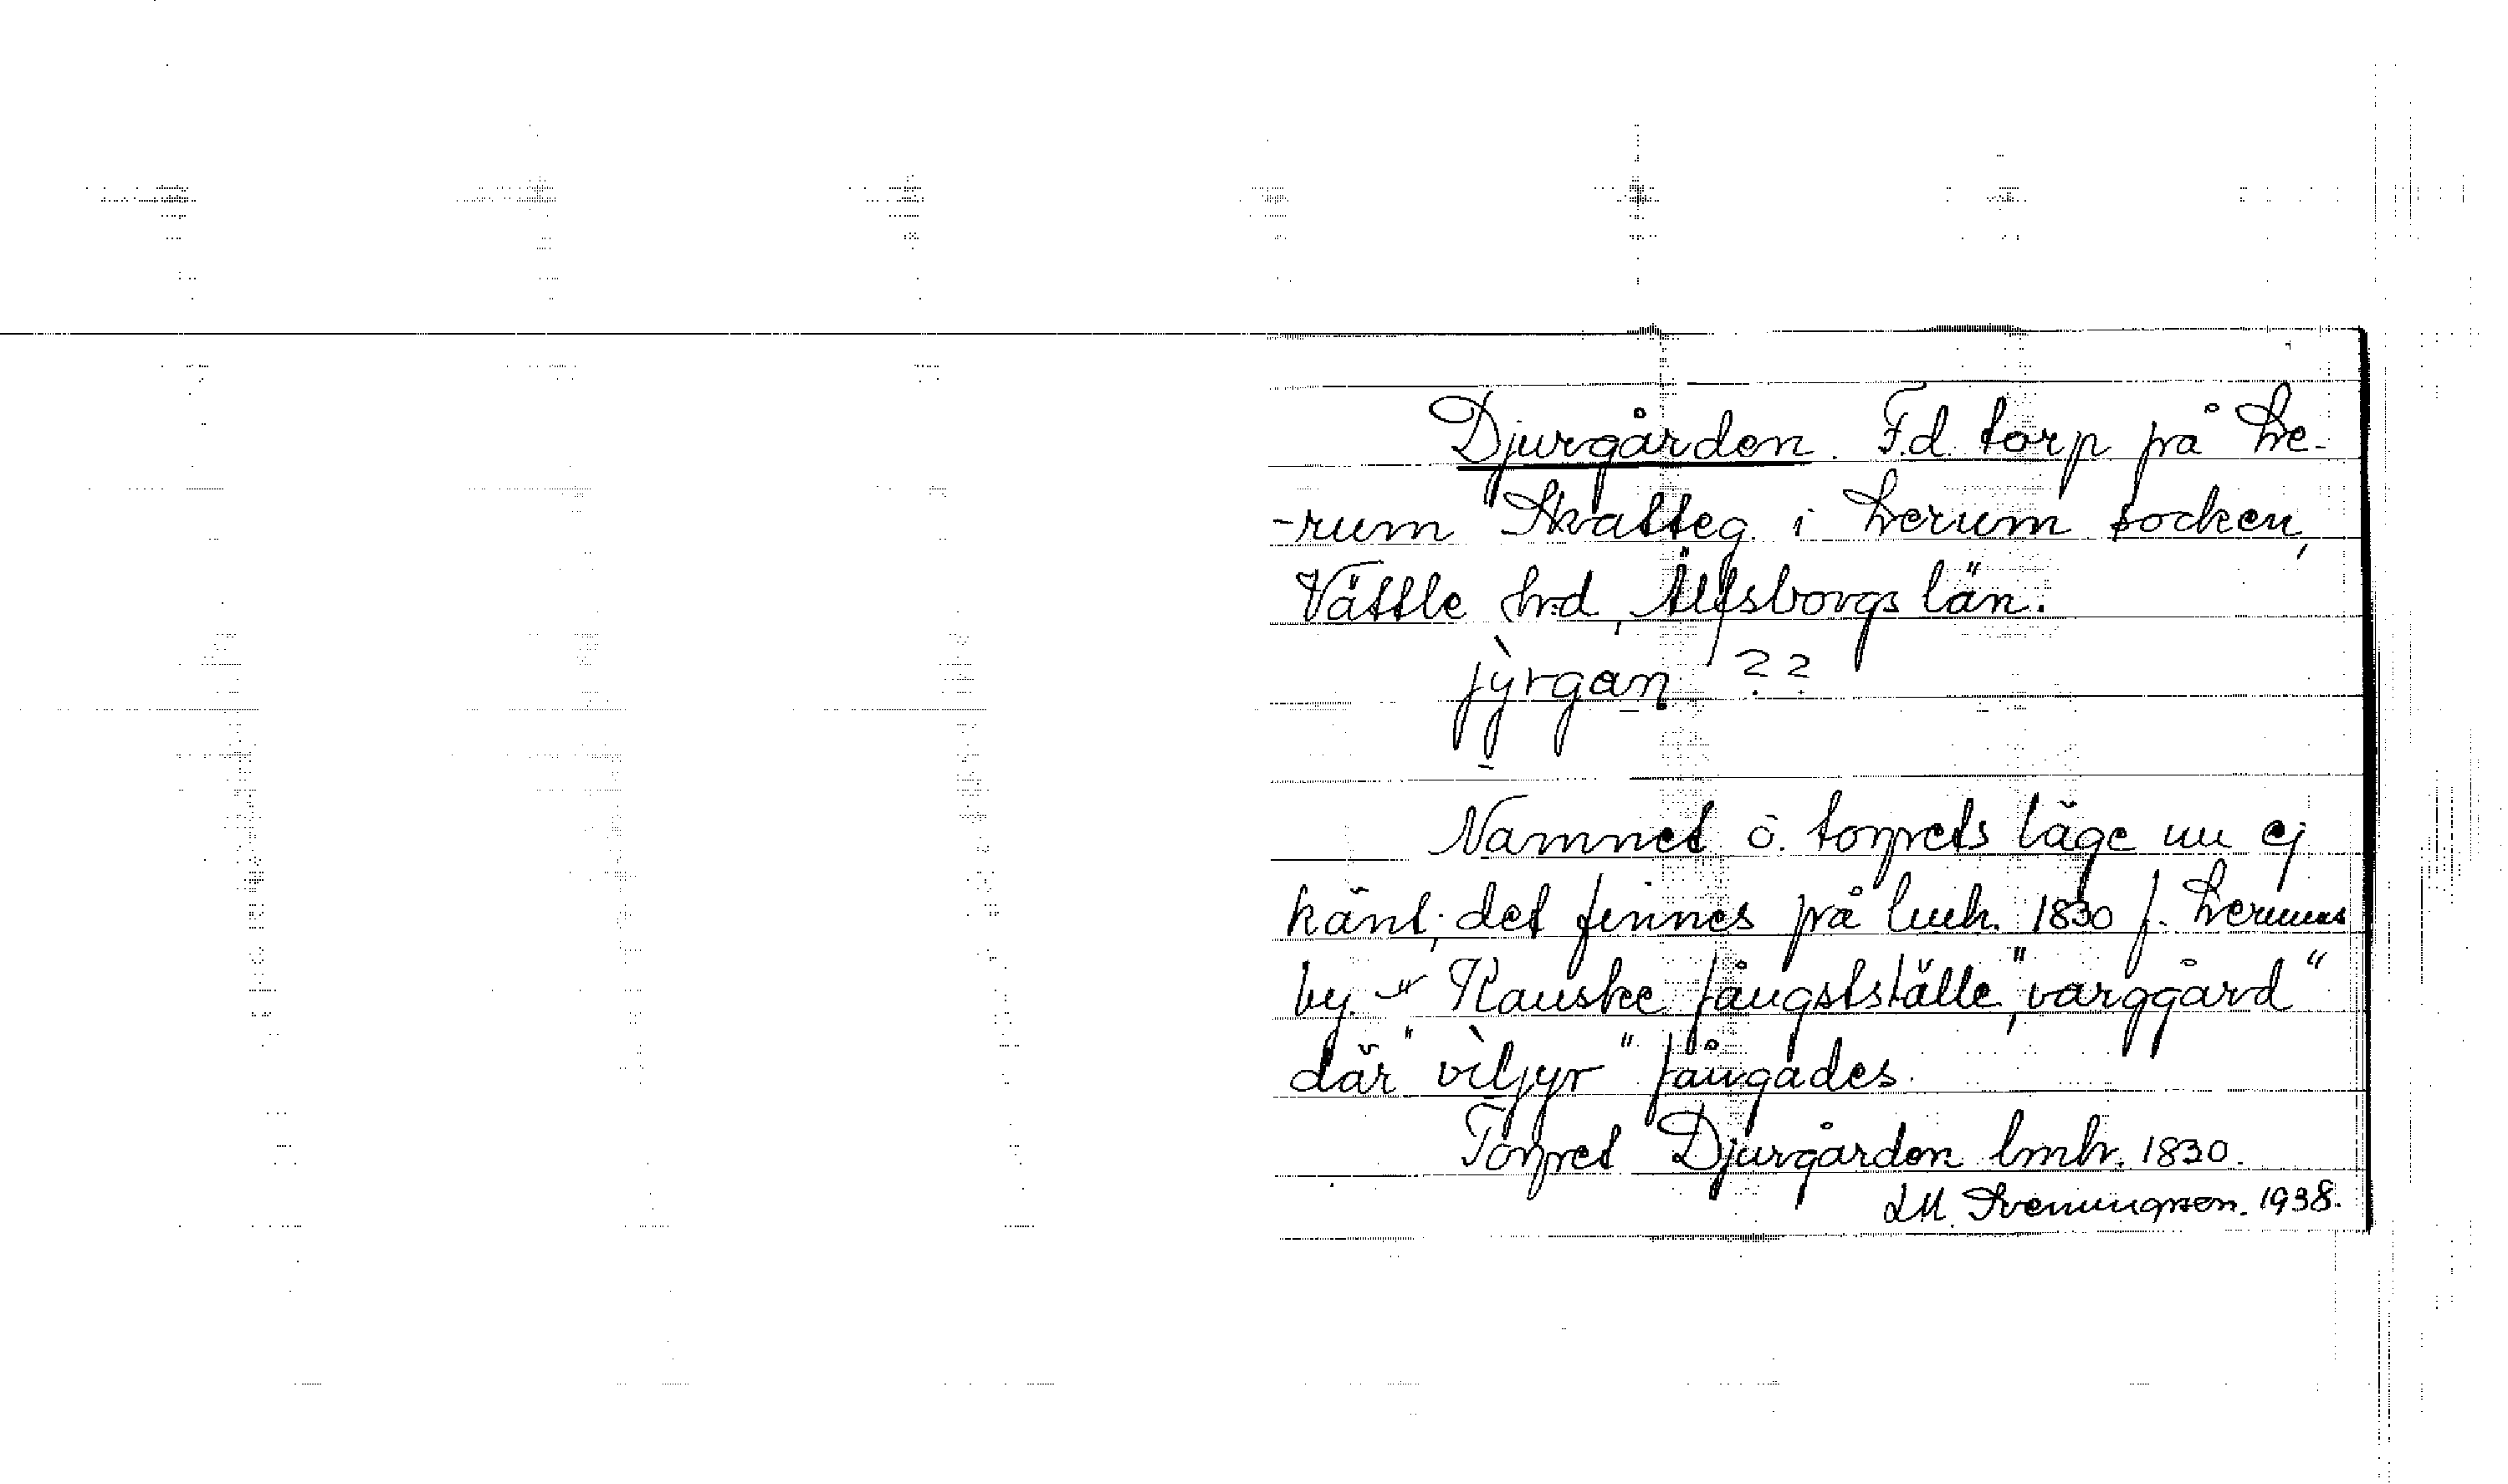 Djurgården. F.d. torp på Le-
-rum Skatteg. i Lerum socken,
Vättle hrd, Älfsborgs län.
jỳrgan ??
Namnet o. torpets läge nu ej
känt; det finnes på lmk. 1830 f. Lerums
by. - Kanske fångstställe, "varggård"
där "viljyr" fångades.
Torpet Djurgården lmkr. 1830.
LM. Svenungsson. 1938.